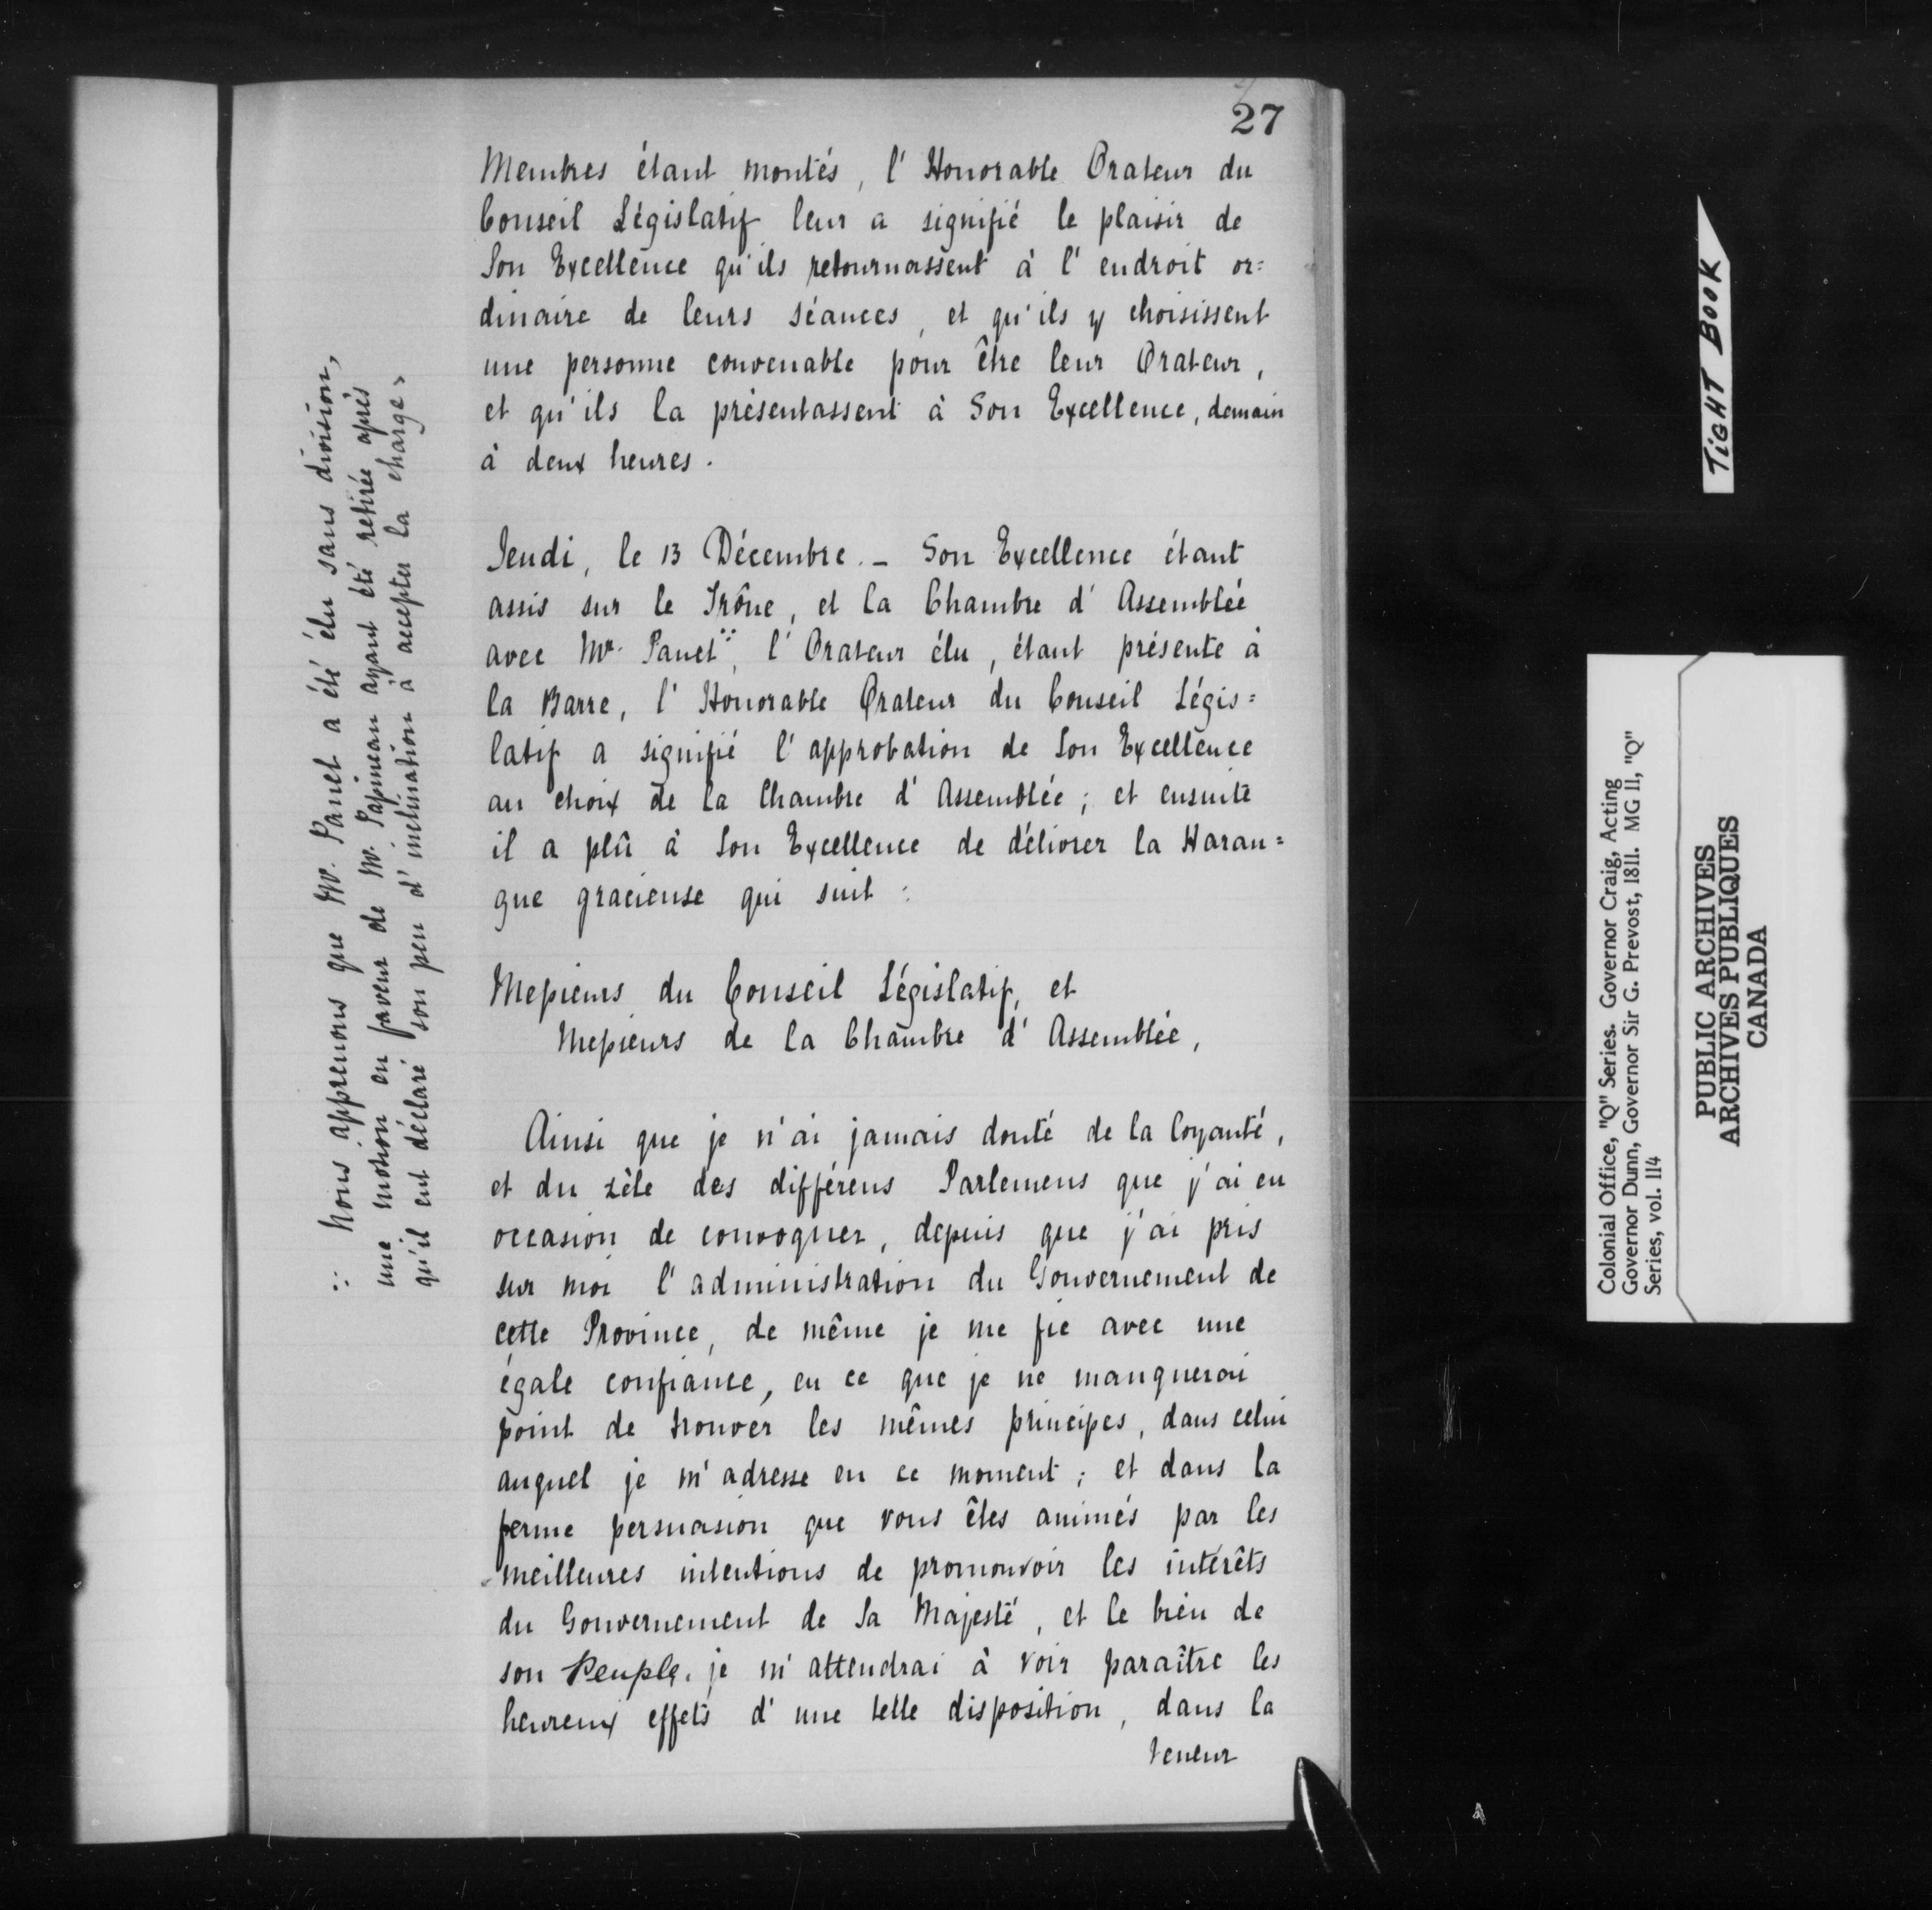 27
Membres étant montés, l'Honorable Orateur du
Conseil Législatif leur a signifié le plaisir de
Son Excellence qu'ils retournassent à l'endroit or=
dinaire de leurs séances, et qu'ils y choisissent
une personne convenable pour être leur Orateur,
et qu'ils la présentassent à Son Excellence, demain
à deux heures.
Jeudi, le 13 Décembre. — Son Excellence étant
assis sur le Trône, et la Chambre d'Assemblée
avec Mr. Panet ∵, l'Orateur élu, étant présente à
la Barre, l'Honorable Orateur du Conseil Légis=
latif a signifié l'approbation de Son Excellence
au choix de la Chambre d'Assemblée; et ensuite
il a plû à Son Excellence de délivrer la Haran=
gue gracieuse qui suit :
Messieurs du Conseil Législatif, et
Messieurs de la Chambre d'Assemblée,
Ainsi que je n'ai jamais douté de la loyauté,
et du zèle des différens Parlemens que j'ai eu
occasion de convoquer, depuis que j'ai pris
sur moi l'administration du Gouvernement de
cette Province, de même je me fie avec une
égale confiance, en ce que je ne manquerai
point de trouver les mêmes principes, dans celui
auquel je m'adresse en ce moment; et dans la
ferme persuasion que vous êtes animés par les
meilleures intentions de promouvoir les intérêts
du Gouvernement de Sa Majesté, et le bien de
son Peuple, je m'attendrai à voir paraître les
heureux effets d'une telle disposition, dans la
teneur
∵ Nous apprenons que Mr. Panet a été élu sans division,
une motion en faveur de Mr. Papineau ayant été retirée après
qu'il eut déclaré son peu d'inclination à accepter la charge.
TIGHT BOOK
Colonial Office, "Q" Series. Governor Craig, Acting
Governor Dunn, Governor Sir G. Prevost, 1811. MG 11, "Q"
Series, vol. 114
PUBLIC ARCHIVES
ARCHIVES PUBLIQUES
CANADA